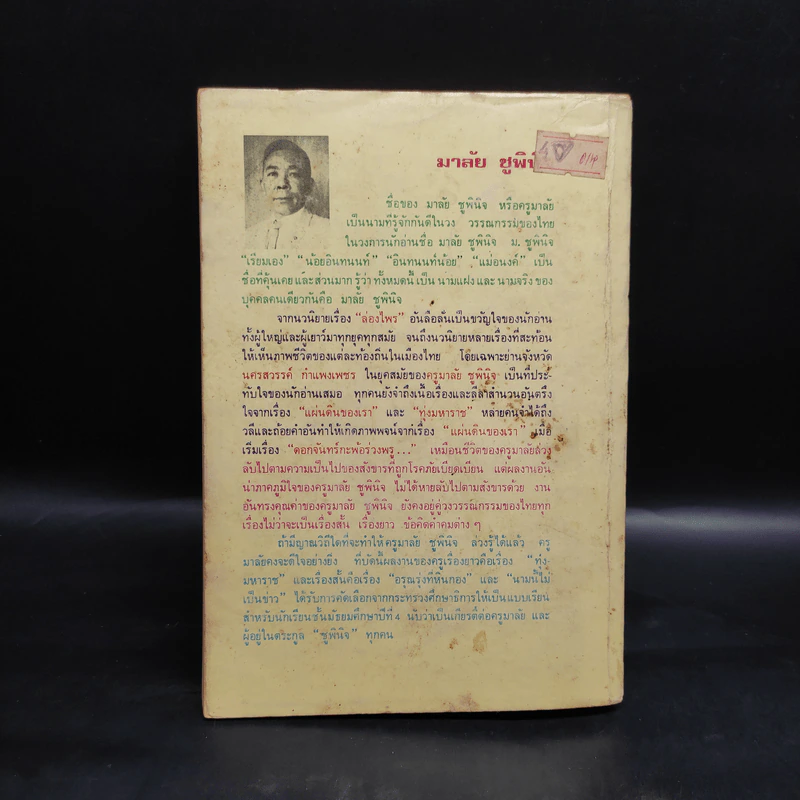 มาลัย ชูพินิ
40
ชื่อของ มาลัย ชูพินิจ หรือครูมาลัย
เป็นนามที่รู้จักกันดีในวง วรรณกรรมของไทย
ในวงการนักอ่านชื่อ มาลัย ชูพินิจ ม. ชูพินิจ
“เรียมเอง” “น้อยอินทนนท์” “อินทนนท์น้อย” “แม่อนงค์” เป็น
ชื่อที่คุ้นเคย และส่วนมาก รู้ว่า ทั้งหมดนี้ เป็น นามแฝง และ นามจริง ของ
บุคคลคนเดียวกันคือ มาลัย ชูพินิจ
จากนวนิยายเรื่อง “ล่องไพร” อันลือลั่นเป็นขวัญใจของนักอ่าน
ทั้งผู้ใหญ่และผู้เยาว์มาทุกยุคทุกสมัย จนถึงนวนิยายหลายเรื่องที่สะท้อน
ให้เห็นภาพชีวิตของแต่ละท้องถิ่นในเมืองไทย โดยเฉพาะย่านจังหวัด
นครสวรรค์ กำแพงเพชร ในยุคสมัยของครูมาลัย ชูพินิจ เป็นที่ประ-
ทับใจของนักอ่านเสมอ ทุกคนยังจำถึงเนื้อเรื่องและลีลาสำนวนอันตรึง
ใจจากเรื่อง “แผ่นดินของเรา” และ “ทุ่งมหาราช” หลายคนจำได้ถึง
วลีและถ้อยคำอันทำให้เกิดภาพพจน์จากเรื่อง “แผ่นดินของเรา” เมื่อ
เริ่มเรื่อง “ดอกจันทร์กะพ้อร่วงพรู...” เหมือนชีวิตของครูมาลัยล่วง
ลับไปตามความเป็นไปของสังขารที่ถูกโรคภัยเบียดเบียน แต่ผลงานอัน
น่าภาคภูมิใจของครูมาลัย ชูพินิจ ไม่ได้หายลับไปตามสังขารด้วย งาน
อันทรงคุณค่าของครูมาลัย ชูพินิจ ยังคงอยู่คู่วงวรรณกรรมของไทยทุก
เรื่องไม่ว่าจะเป็นเรื่องสั้น เรื่องยาว ข้อคิดคำคมต่าง ๆ
ถ้ามีญาณวิถีใดที่จะทำให้ครูมาลัย ชูพินิจ ล่วงรู้ได้แล้ว ครู
มาลัยคงจะดีใจอย่างยิ่ง ที่บัดนี้ผลงานของครูเรื่องยาวคือเรื่อง “ทุ่ง-
มหาราช” และเรื่องสั้นคือเรื่อง “อรุณรุ่งที่หินกอง” และ “นามนี้ไม่
เป็นข่าว” ได้รับการคัดเลือกจากกระทรวงศึกษาธิการให้เป็นแบบเรียน
สำหรับนักเรียนชั้นมัธยมศึกษาปีที่ 4 นับว่าเป็นเกียรติต่อครูมาลัย และ
ผู้อยู่ในตระกูล “ชูพินิจ” ทุกคน